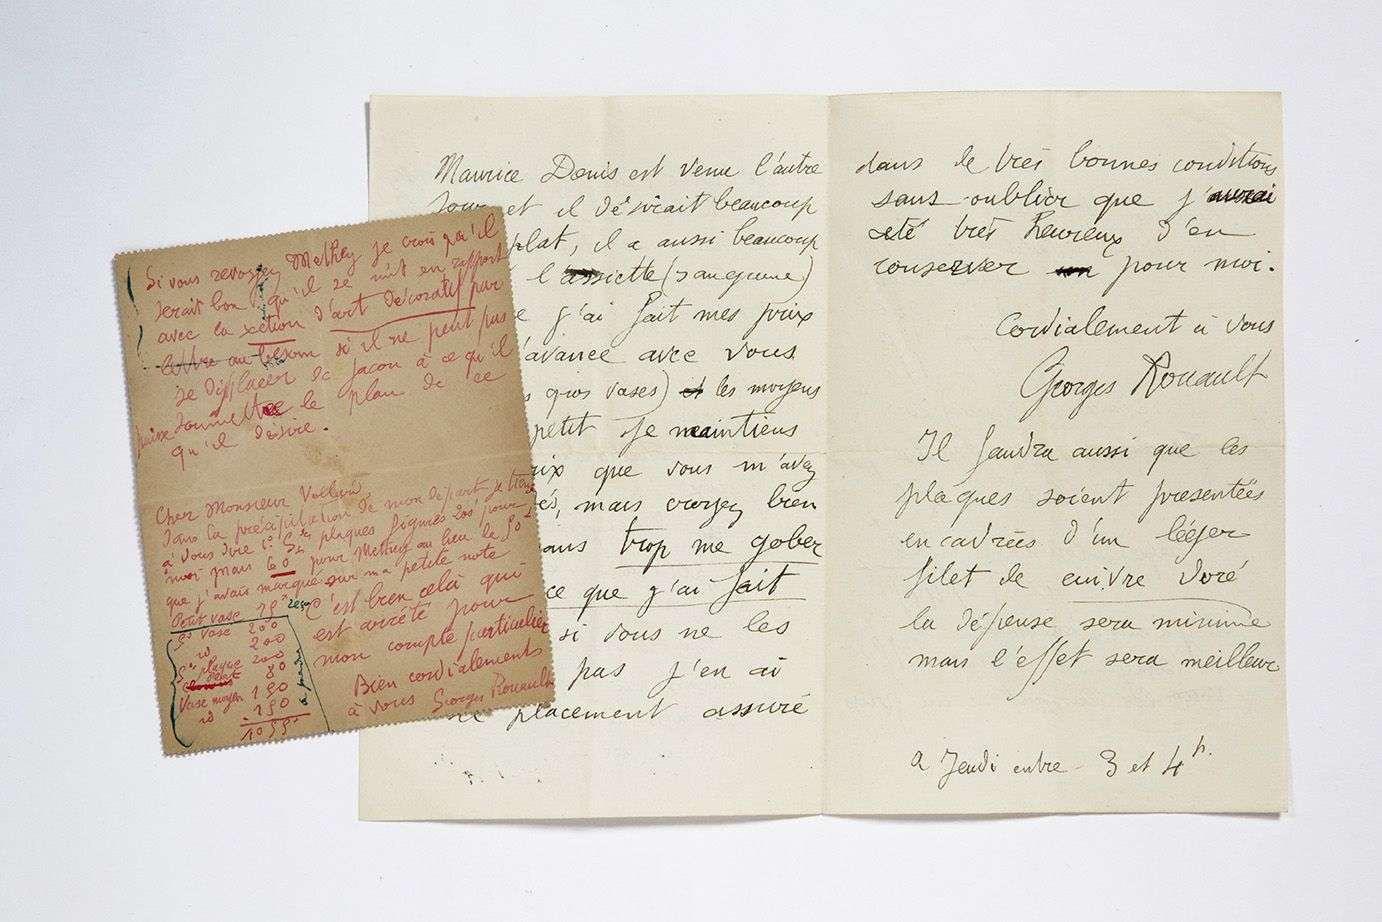 Si vous revoyez Methey je crois qu'il
serait bon qu'il se mit en rapport
avec la section d'art décoratif par
lettre au besoin si il ne peut pas
se déplacer de façon à ce qu'il
puisse soumettre le plan de ce
qu'il désire.
Cher Monsieur Vollard
Dans la précipitation de mon départ je
à vous dire plaques 200 pour
moi mais 60 pour Methey au lieu de 50
que j'avais marqué sur ma petite note
Petit vase 75
c'est bien cela qui
est arrêté pour
mon compte particulier
Bien cordialement
à vous Georges Rouault
gd vase 200
id 200
gde plaque 200
80
Vase moyen 150
id 150
1055
à prendre
Maurice Denis est venu l'autre
jour et il désirait beaucoup
plat, il a aussi beaucoup
l'assiette (sanguine)
j'ai fait mes prix
d'avance avec vous
gros vases) et les moyens
petit Je maintiens
prix que vous m'avez
mais croyez bien
sans trop me gober
ce que j'ai fait
si vous ne les
pas j'en ai
placement assuré
dans de très bonnes conditions
sans oublier que j'aurai
été très heureux d'en
conserver pour moi.
Cordialement à vous
Georges Rouault
Il faudra aussi que les
plaques soient présentées
encadrées d'un léger
filet de cuivre doré
la dépense sera minime
mais l'effet sera meilleur
a Jeudi entre 3 et 4 h.